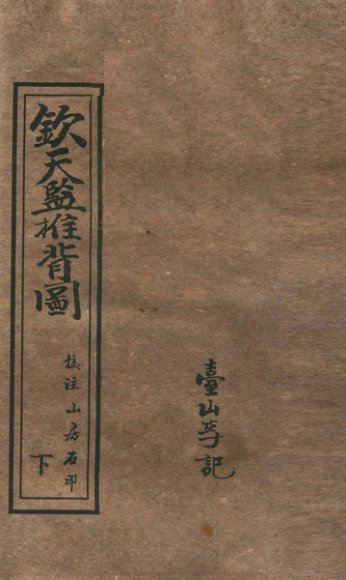 臺山李記
欽天監推背圖
校注山房石印
下